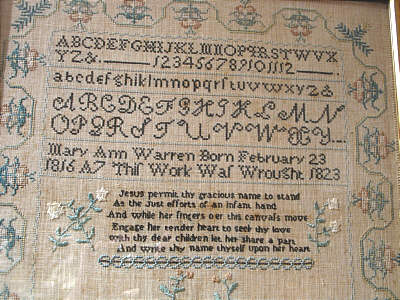 ABCDEFGHIJKLMNOPQRSTWVX
YZ&. 123456789101112
abcdefghiklmnopqrſtuvwxyz&
ABCDEFGHIKLMN
OPQRSTUVWXY
Mary Ann Warren Born February 23
1816 A7 Thiſ Work Waſ Wrought 1823
Jesus permit thy gracious name to stand
As the Just efforts of an infant hand
And while her fingers oer this canvass move
Engage her tender heart to seek thy love
With thy dear children let her share a part
And write thy name thyself upon her heart